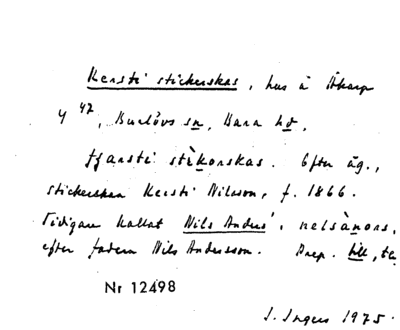 Kersti stickerskas, hus å Åkarp
4 47, Burlövs sn, Bara hd.
stikorskas. Efter äg.,
stickerskan Kersti Nilsson, f. 1866.
Tidigare kallat Nils Anders',
efter fadern Nils Andersson. Prep. till,
Nr 12498
J. Ingers 1975.